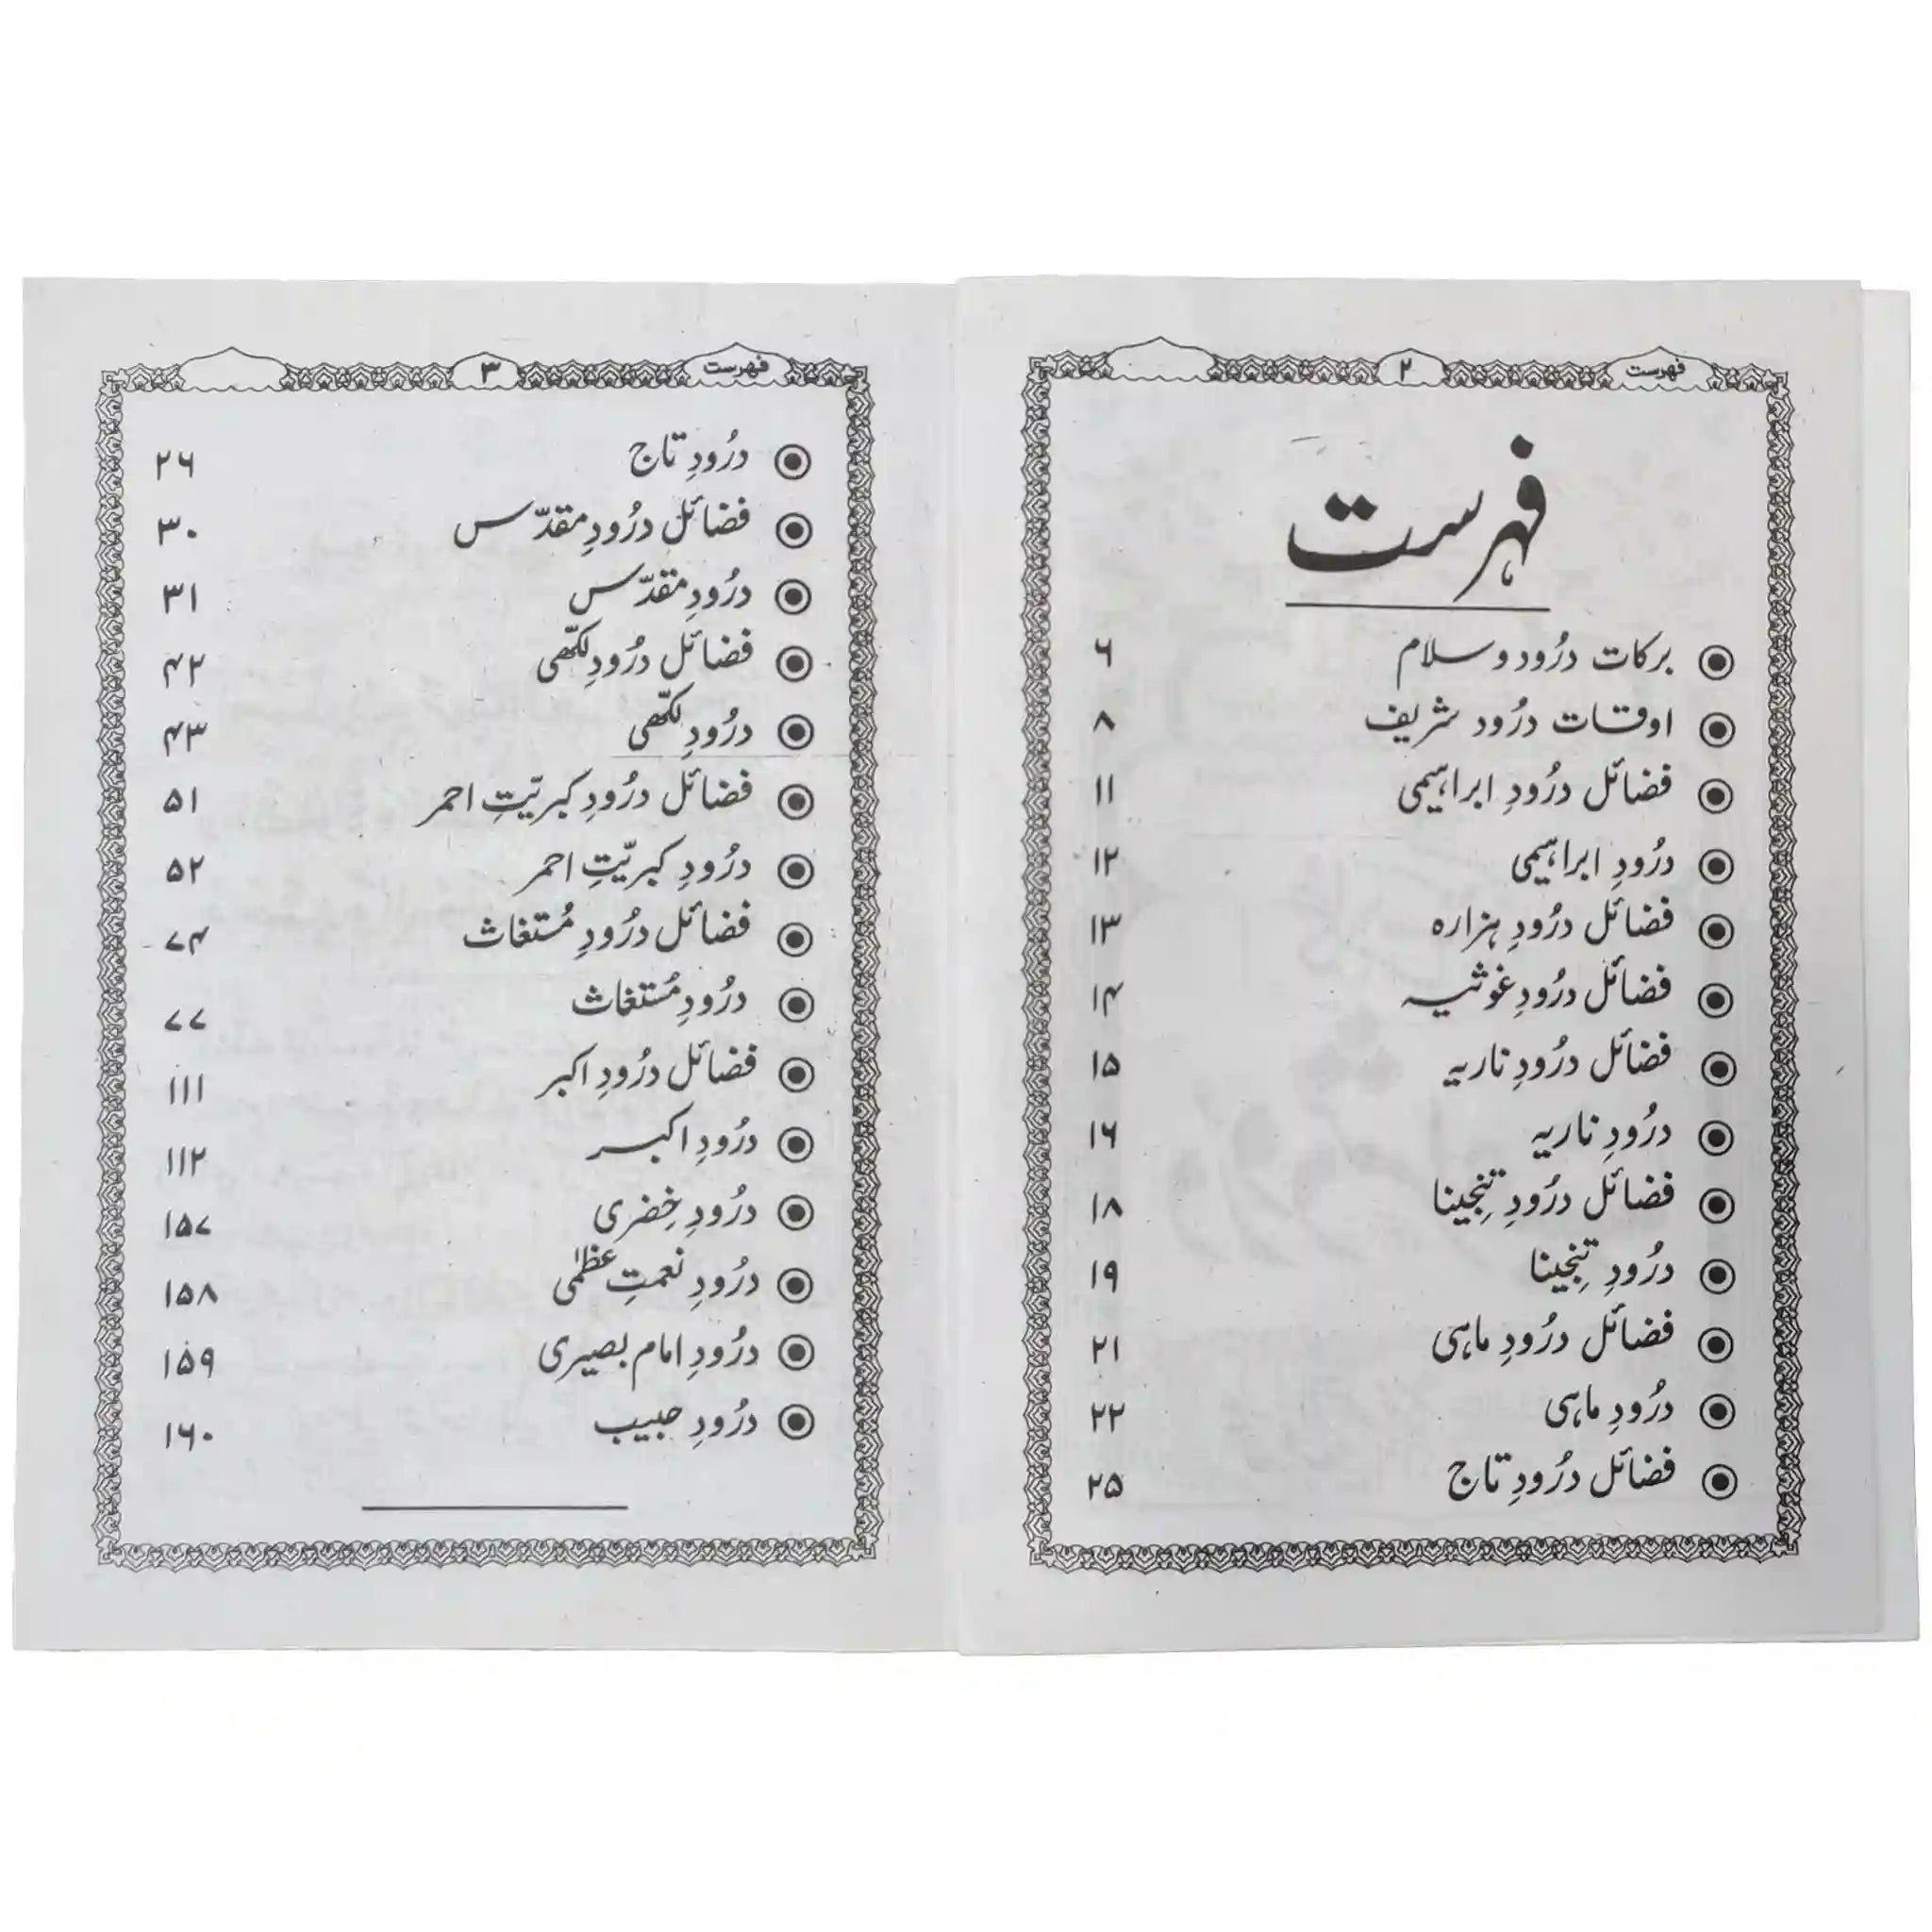 فہرست ۲
فہرست
برکات درُود و سلام ۶
اوقات درُود شریف ۸
فضائل درُودِ ابراہیمی ۱۱
درُودِ ابراہیمی ۱۲
فضائل درُودِ ہزارہ ۱۳
فضائل درُودِ غوثیہ ۱۴
فضائل درُودِ ناریہ ۱۵
درُودِ ناریہ ۱۶
فضائل درُودِ تنجینا ۱۸
درُودِ تنجینا ۱۹
فضائل درُودِ ماہی ۲۱
درُودِ ماہی ۲۲
فضائل درُودِ تاج ۲۵
فہرست ۳
درُودِ تاج ۲۶
فضائل درُودِ مقدّس ۳۰
درُودِ مقدّس ۳۱
فضائل درُودِ لکھّی ۴۲
درُودِ لکھّی ۴۳
فضائل درُودِ کبریّتِ احمر ۵۱
درُودِ کبریّتِ احمر ۵۲
فضائل درُودِ مُستغاث ۷۴
درُودِ مُستغاث ۷۷
فضائل درُودِ اکبر ۱۱۱
درُودِ اکبر ۱۱۲
درُودِ خِضری ۱۵۷
درُودِ نعمتِ عظمٰی ۱۵۸
درُودِ امام بصیری ۱۵۹
درُودِ حبیب ۱۶۰